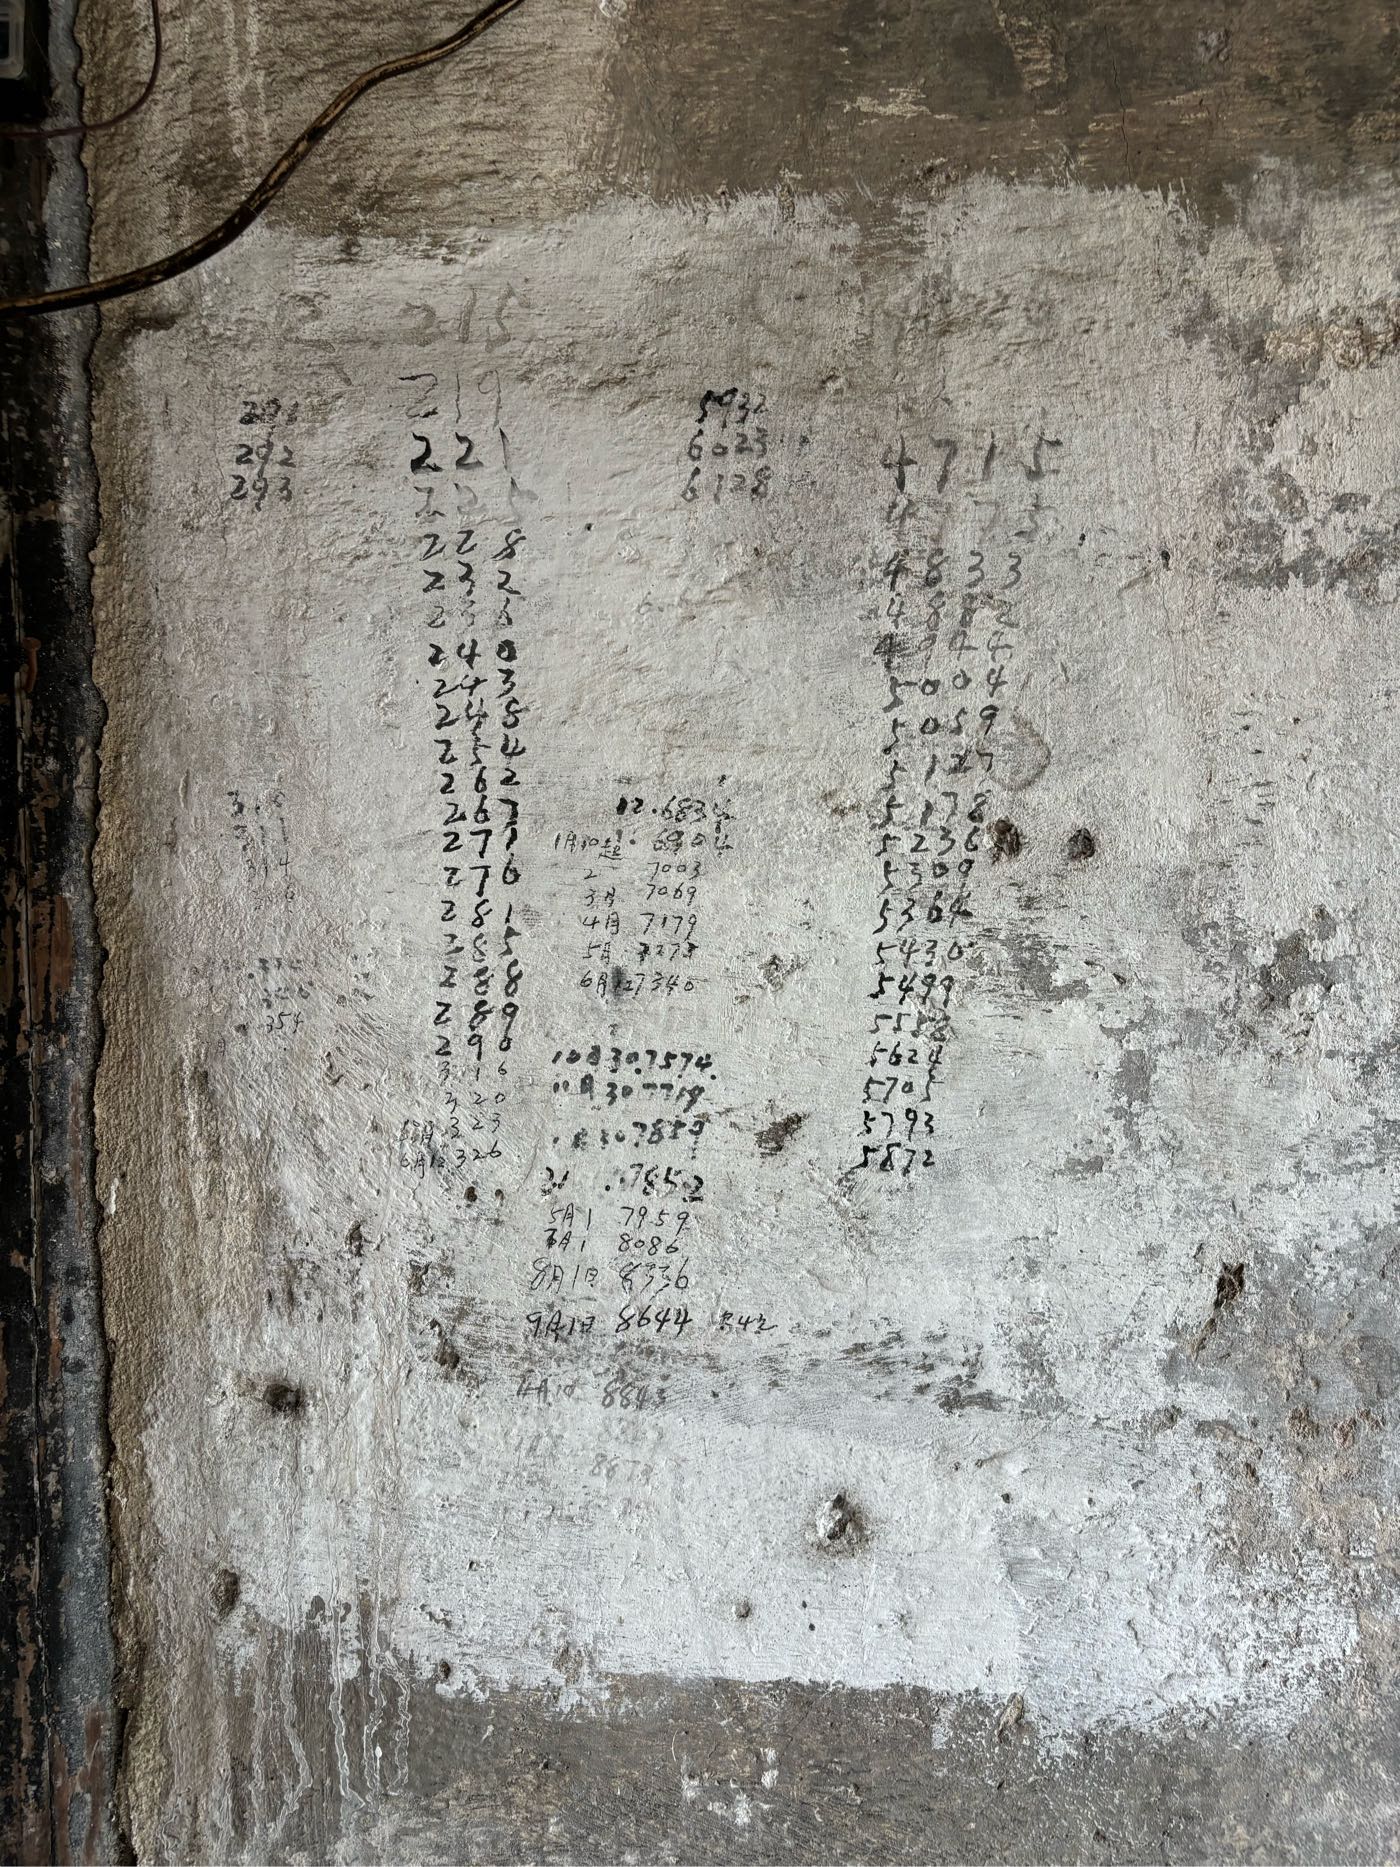 215
219
221
225
228
232
236
240
243
248
254
262
267
271
276
281
285
288
289
290
316
320
323
6月12 326
291
292
293
354
5932
6023
6128
12.6834
1月30 超 6904
2 7003
3月 7069
4月 7179
5月 7273
6月12 7340
10月30.7574.
11月30 7719
30.7859
31 .7852
5月1 7959
6月1 8086
8月1日 8336
9月1日 8644
8843
4715
4773
4833
4882
4944
5004
5059
5127
5178
5236
5309
5364
5430
5499
5558
5624
5705
5793
5872